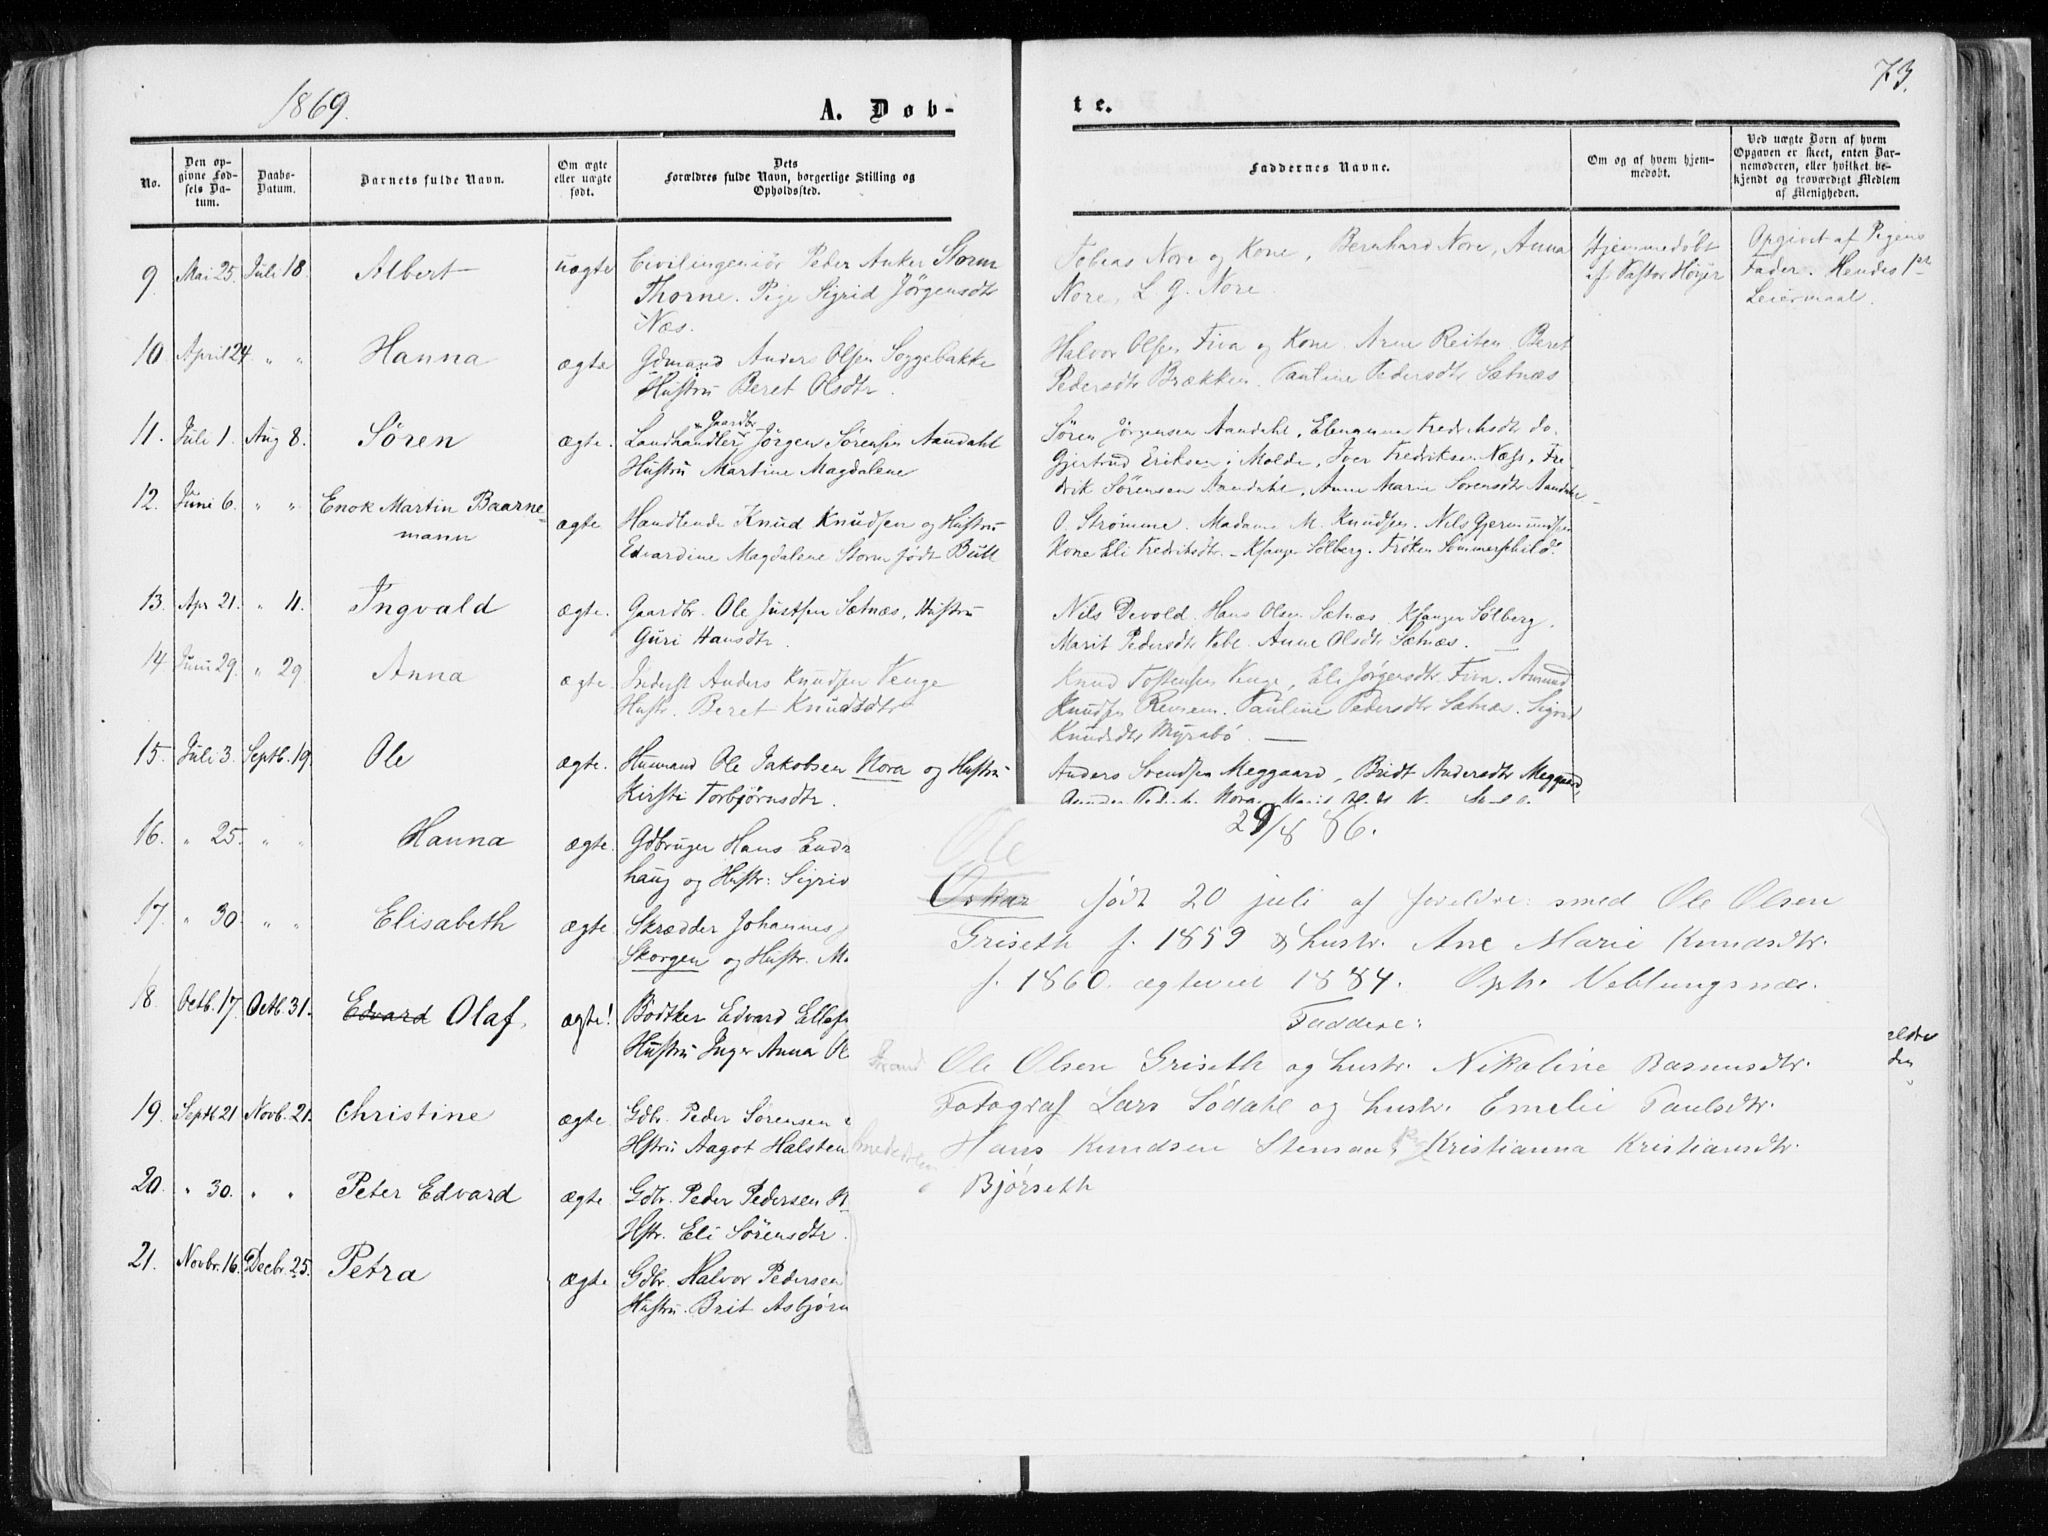 1869.
A. Døb-
te.
73.
No.
Den op-
givne Fød-
sels Da-
tum.
Daabs-
Datum.
Barnets fulde Navn.
Om ægte
eller uægte
født.
Dets
Forældres fulde Navn, borgerlige Stilling og
Opholdssted.
Faddernes Navne.
Om og af hvem hjem-
medøbt.
Ved uægte Børn af hvem
Opgaven er skeet, enten Bar-
nemoderen, eller hvilket be-
kjendt og troværdigt Medlem
af Menigheden.
9. Mai 25. Juli 18. Albert uægte Civilingeniör Peder Anker Storm
Thorne. Pige Sigrid Jörgensdtr
Næs.
Tobias Nore og Kone, Bernhard Nore, Anna
Nore, L. G. Nore.
Hjemmedøbt
af Pastor Höyer
Opgivet af Pigens
Fader. Hendes 1ste
Leiermaal.
10 April 24 " " Hanna ægte Gdmand Anders Olsen Soggebakke
Hustru Beret Olsdtr.
Halvor Olsen Fiva og Kone. Arne Reiten. Beret
Pedersdtr Brækken. Pauline Pedersdtr Sætnæs
11. Juli 1. Aug 8. Sören ægte. Landhandler & Gaardbr. Jörgen Sörensen Aandahl
Hustru Martine Magdalene
Sören Jörgensen Aandahl. Fredriksdtr do.
Gjertrud Eriksen i Molde, Iver Fredriksen Næss, Fre
drik Sörensen Aandahl, Anne Marie Sorensdtr Aandahl
12. Juni 6. " " Enok Martin Baarne-
mann ægte Handlende Knud Knudsen og Hustru
Edvardine Magdalene Storm født Bull
O. Strömme. Madame M. Knudsen. Nils Gjermundsen
Kone Eli Fredriksdtr. Sølberg. Frøken Sommerschild.
13. Apr 21. " 11. Ingvald ægte. Gaardbr. Ole Justsen Sætnæs, Hustru
Guri Hansdtr.
Nils Devold. Hans Olsen Sætnæs. Sølberg.
Marit Pedersdtr Veble. Anne Olsdtr Sætnæs.
14. Juni 29. " 29. Anna ægte. Inderst Anders Knudsen Venge
Hustr. Beret Knudsdtr
Knud Tostensen Venge, Eli Jørgensdtr Fiva. Amund
Knudsen. Pauline Pedersdtr Sætnæs. Sigrid
Knudsdtr Myrabö.
15. Juli 3. Septb. 19. Ole ægte. Husmand Ole Jakobsen Nora og Hustru
Kirsti Torbjørnsdtr.
Anders Svendsen Meggaard, Bridt Andersdtr Meggaard,
16. " 25. " " Hanna ægte. Gdbruger Hans Endr
haug og Hustr: Sigrid
17. " 30. " " Elisabeth ægte. Skrædder Johannes
Skorgen og Hustr. M
18. Octb. 17. Octb. 31. Edvard Olaf. ægte! Bödtker Edvard Ellefs
Hustru Inger Anna Ol
19. Septb 21 Novb. 21. Christine ægte. Gdbr. Peder Sörensen
Hstru Aagot Halsten
20. " 30. " " Peter Edvard ægte. Gdbr. Peder Pedersen
Hstr. Eli Sörensdtr.
21. Novbr. 16. Decbr. 25. Petra ægte Gdbr. Halvor Pedersen
Hustru. Brit Asbjörn
29/8 86.
Ole
Oskar født 20 juli af foreldre: smed Ole Olsen
Griseth f. 1859 & hustr. Ane Marie Knudsdtr.
f. 1860. egteviet 1884. Oph. Veblungsnæs.
Faddere:
Ole Olsen Griseth og hustr. Nikoline Rasmusdtr.
Fotograf Lars Södahl og hustr. Emelie Paulsdtr.
Hans Knudsen Pg Kristianna Kristiansdtr.
Bjørseth